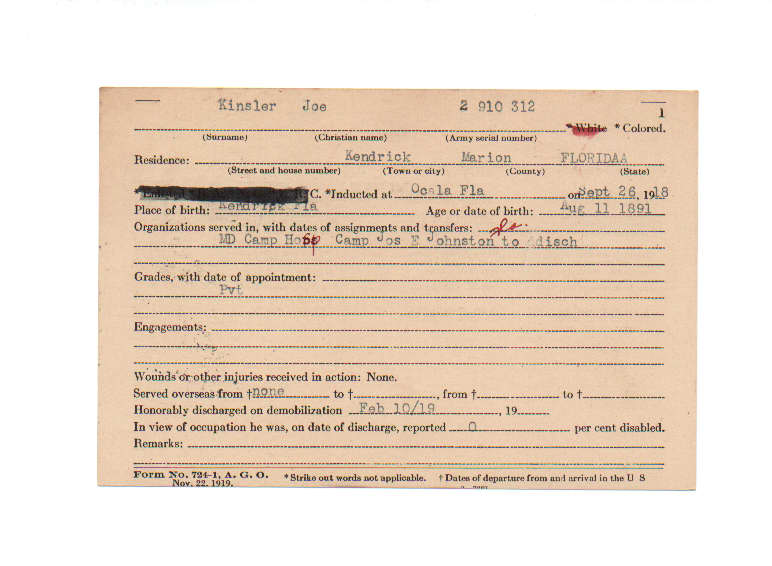 Kinsler Joe 2 910 312
1
*White *Colored.
(Surname) (Christian name) (Army serial number)
Residence: Kendrick Marion FLORIDAA
(Street and house number) (Town or city) (County) (State)
* C. *Inducted at Ocala Fla on Sept 26, 1918
Place of birth: Kendrick Fla Age or date of birth: Aug 11 1891
Organizations served in, with dates of assignments and transfers:
MD Camp Hosp Camp Jos E Johnston to disch
Grades, with date of appointment:
Pvt
Engagements:
Wounds or other injuries received in action: None.
Served overseas from †none to †, from † to †
Honorably discharged on demobilization Feb 10/19, 19
In view of occupation he was, on date of discharge, reported 0 per cent disabled.
Remarks:
Form No. 724-1, A. G. O. *Strike out words not applicable. † Dates of departure from and arrival in the U S
Nov. 22, 1919.